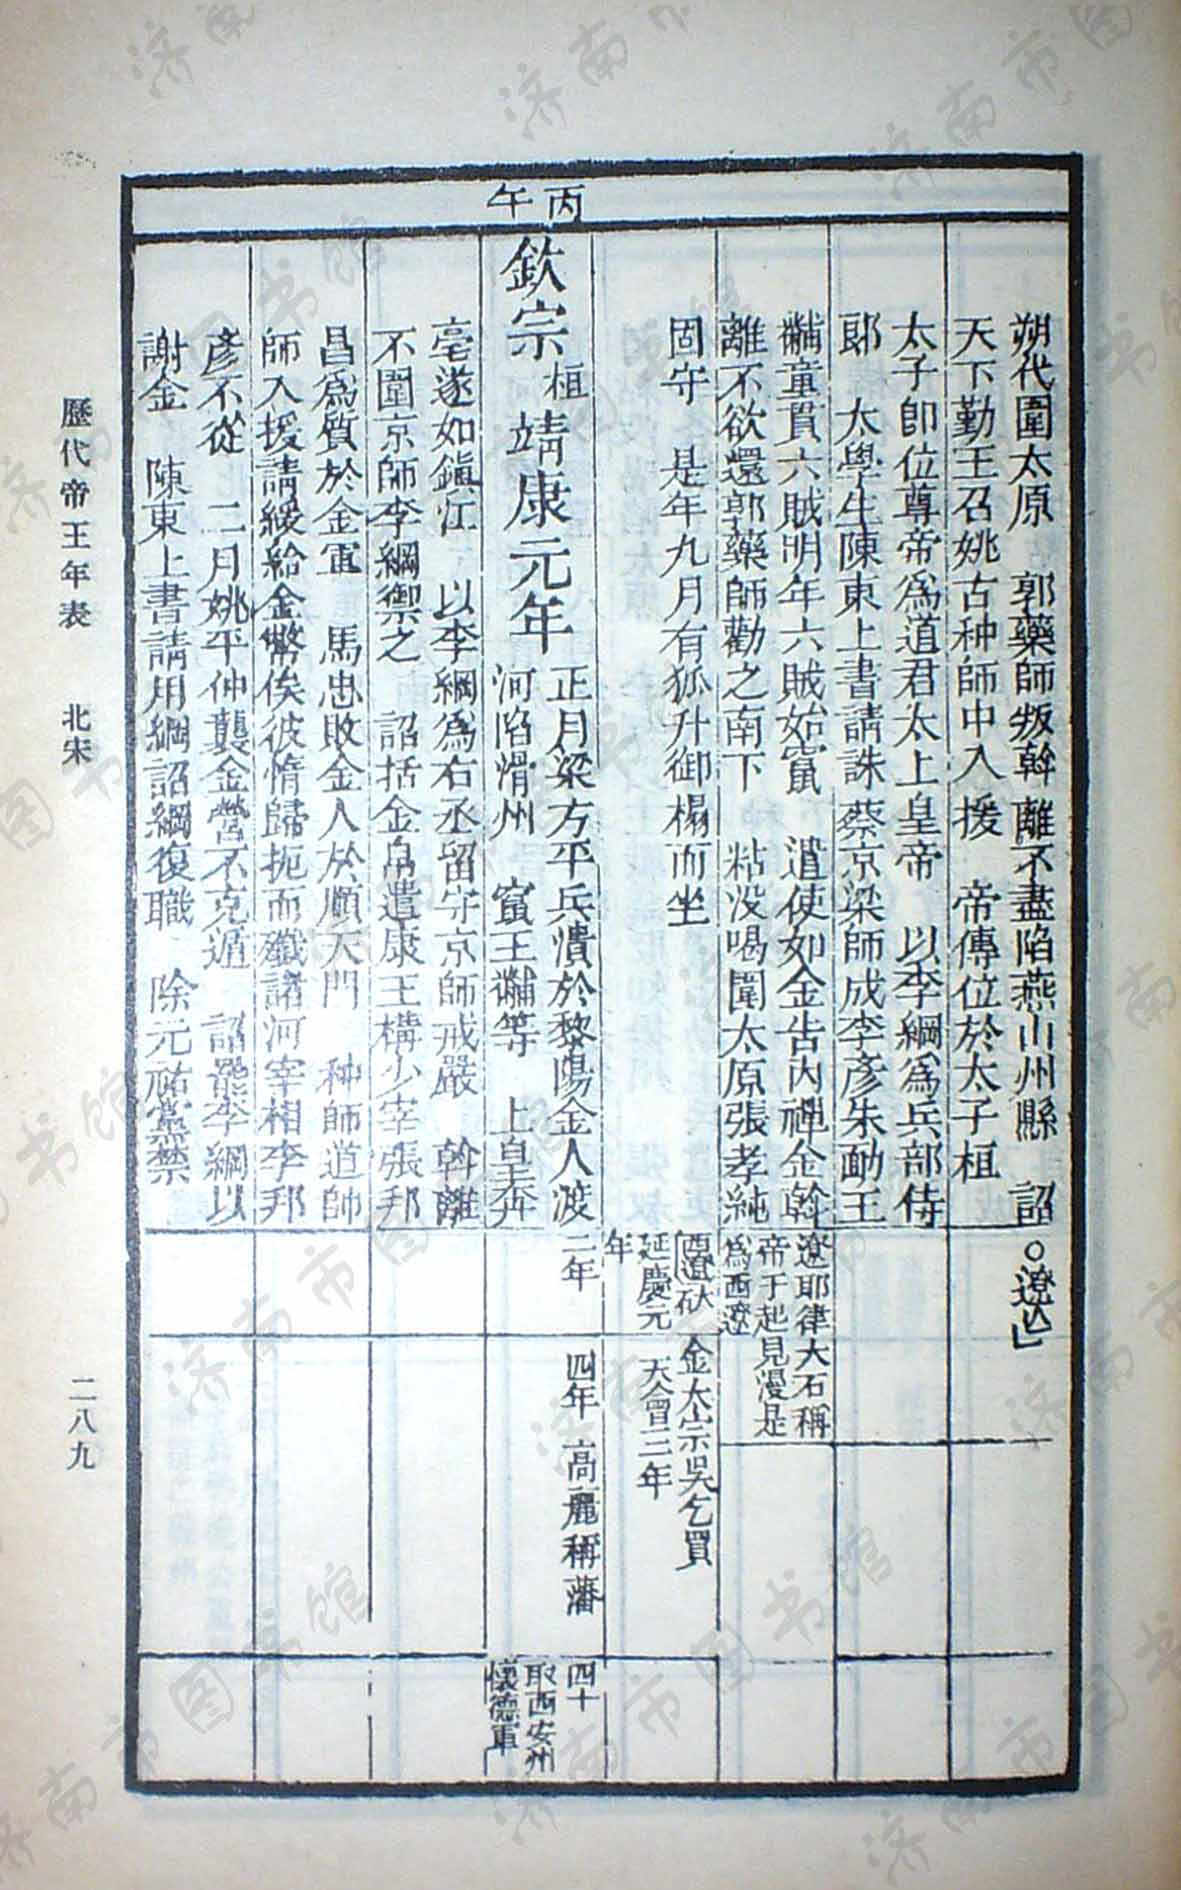 丙午
朔代圍太原　郭藥師叛斡離不盡陷燕山州縣　詔
天下勤王召姚古种師中入援　帝傳位於太子桓
太子卽位尊帝爲道君太上皇帝　以李綱爲兵部侍
郎　太學生陳東上書請誅蔡京梁師成李彥朱勔王
黼童貫六賊明年六賊始竄　遣使如金告內禪金斡
離不欲還郭藥師勸之南下　粘没喝圍太原張孝純
固守　是年九月有狐升御榻而坐
欽宗桓靖康元年
正月梁方平兵潰於黎陽金人渡
河陷滑州　竄王黼等　上皇奔
亳遂如鎭江　以李綱爲右丞留守京師戒嚴　斡離
不圍京師李綱禦之　詔括金帛遣康王構少宰張邦
昌爲質於金軍　馬忠敗金人於順天門　种師道帥
師入援請緩給金幣俟彼惰歸扼而殲諸河宰相李邦
彥不從　二月姚平仲襲金營不克遁　詔罷李綱以
謝金　陳東上書請用綱詔綱復職　除元祐黨禁
○遼亡
遼耶律大石稱
帝于起兒漫是
爲西遼
西遼
延慶元
年
二年
金太宗吳乞買
天會三年
四年　高麗稱藩
四十
取西安州
懷德軍
歷代帝王年表　北宋
二八九
济南市图书馆